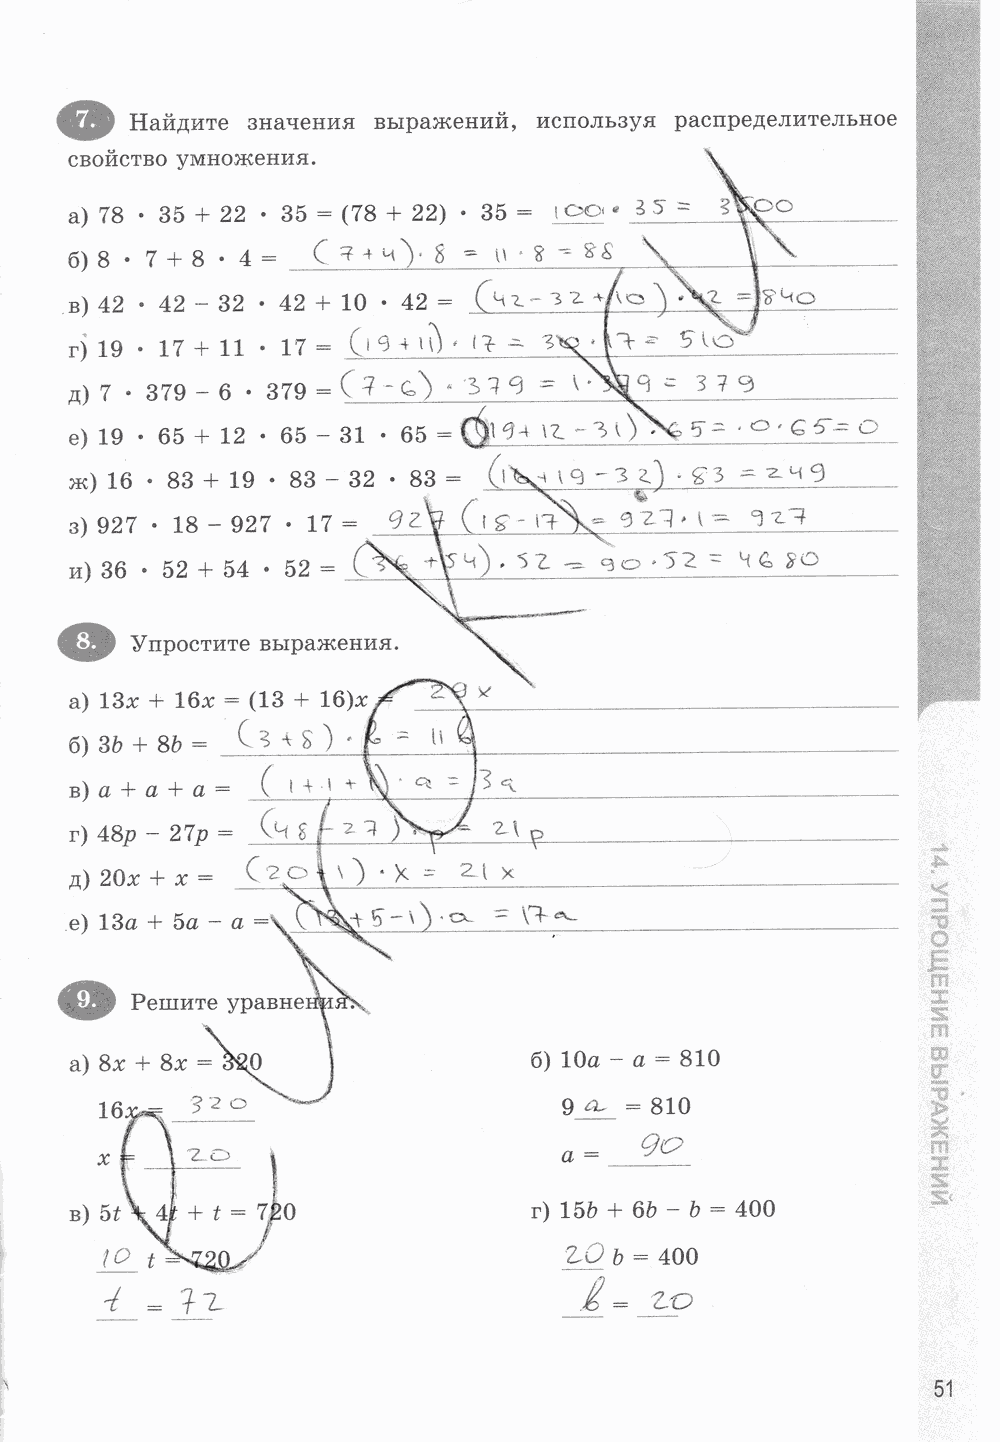 7. Найдите значения выражений, используя распределительное
свойство умножения.
а) 78 · 35 + 22 · 35 = (78 + 22) · 35 = 100 · 35 = 3500
б) 8 · 7 + 8 · 4 = (7+4)·8 = 11·8 = 88
в) 42 · 42 − 32 · 42 + 10 · 42 = (42-32+10)·42 = 840
г) 19 · 17 + 11 · 17 = (19+11)·17 = 30·17 = 510
д) 7 · 379 − 6 · 379 = (7-6)·379 = 1·379 = 379
е) 19 · 65 + 12 · 65 − 31 · 65 = (19+12-31)·65=·0·65=0
ж) 16 · 83 + 19 · 83 − 32 · 83 = (16+19-32)·83 = 249
з) 927 · 18 − 927 · 17 = 927 (18-17) = 927·1 = 927
и) 36 · 52 + 54 · 52 = (36+54)·52 = 90·52 = 4680
8. Упростите выражения.
а) 13x + 16x = (13 + 16)x = 29x
б) 3b + 8b = (3+8)·b = 11b
в) a + a + a = (1+1+1)·a = 3a
г) 48p − 27p = (48-27)·p = 21p
д) 20x + x = (20+1)·x = 21x
е) 13a + 5a − a = (13+5-1)·a = 17a
9. Решите уравнения.
а) 8x + 8x = 320
16x = 320
x = 20
б) 10a − a = 810
9 a = 810
a = 90
в) 5t + 4t + t = 720
10 t = 720
t = 72
г) 15b + 6b − b = 400
20 b = 400
b = 20
14. УПРОЩЕНИЕ ВЫРАЖЕНИЙ
51